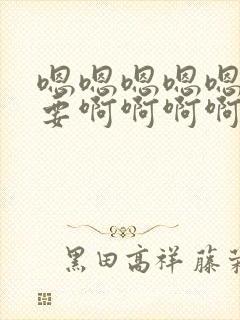 嗯嗯嗯嗯嗯
要啊啊啊啊
黑田高祥 藤